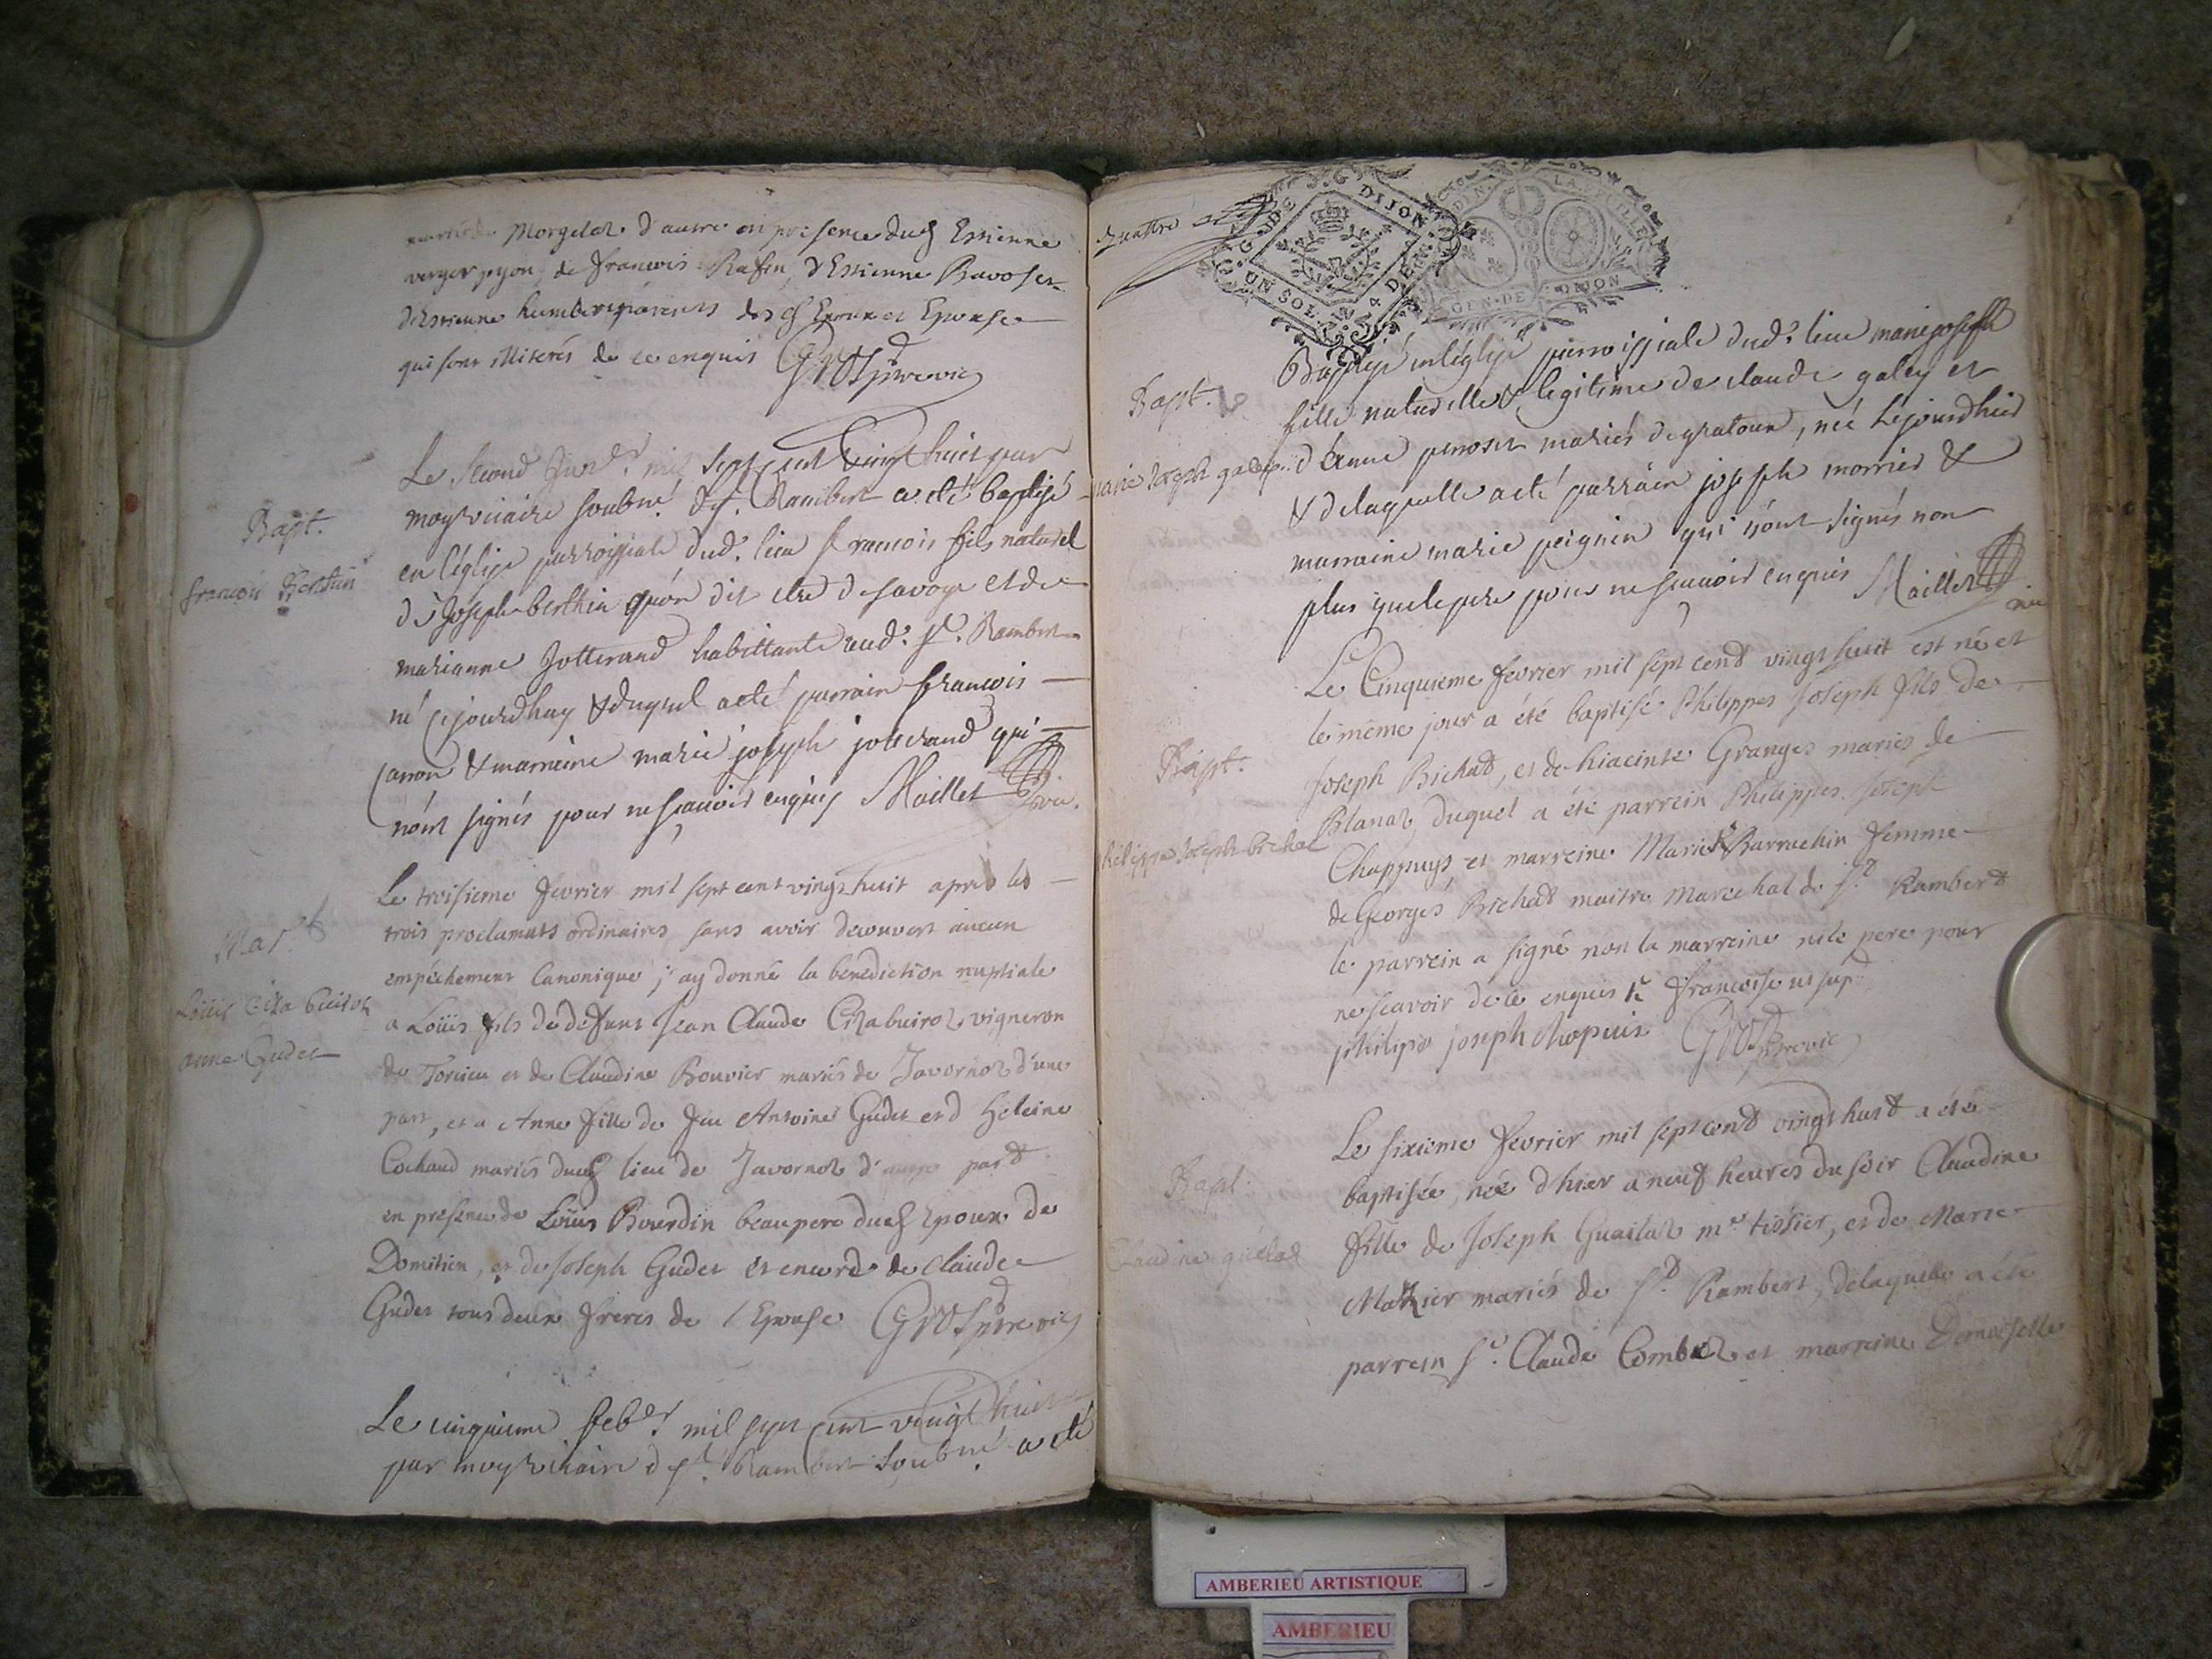 Morgelaz d'autre en presence dud Estienne
verger pyon, de francois Rafin, d'Estienne Ravoser
d'Estienne humbert parens des d Epoux et Epouse
qui sont illiterés de ce enquis Grosp
Bapt.
francois Berthin
Le second mil sept cent vingt huit par
moy vicaire soubné de st. Rambert a eté baptisé
en l'église parroissiale dud. lieu francois fils naturel
de Joseph berthin qu'on dit etre de savoye et de
marianne Jotterand habittante aud. st. Rambert
né cejourdhuy & duquel a eté parrain francois
& marraine marie joseph jotterand qui
n'ont signés pour ne scavoir enquis Maillet vic.
Mar.
Loüis Cizabuiroz
anne Gudet
Le troisieme fevrier mil sept cent vingt huit apres les
trois proclamats ordinaires sans avoir decouvert aucun
empéchement Canonique, j'ay donné la benediction nuptiale
a Loüis fils de defunt Jean Claude Cizabuiroz vigneron
de Torcieu et de Claudine Bouvier mariés de Javornoz d'une
part, et a Anne fille de feu Antoine Gudet et d'Heleine
Cochaud mariés dud lieu de Javornoz d'autre part
en presence de Loüis Bourdin beaupere dud Epoux de
Domitien, et de Joseph Gudet et encore de Claude
Gudet tous deux freres de l'Epouse Grosp
Le cinquieme feb mil sept cent vingt huit
par moy vicaire de st. Rambert soubné a eté
quattre
G. DE DIJON
UN SOL 4 DEN
LA FEUILLE
GEN. DE DIJON
Bapt.
marie Joseph galey
Baptisé en l'église parroissiale dud. lieu marie joseph
fille naturelle & legitime de claude galey et
d'anne perroset mariés de gratoux, née cejourdhuy
& de laquelle a eté parrain joseph morrier &
marraine marie peignier qui n'ont signés non
plus que le pere pour ne scavoir enquis Maillet
vic
Bapt.
philippe Joseph Bichat
Le Cinquieme fevrier mil sept cent vingt huit est né et
le méme jour a été baptisé Philippes Joseph fils de
Joseph Bichat, et de hiacinte Granges mariés de
Blanaz, duquel a été parrein Philippes Joseph
Chappuys et marreine Marie Barruchin femme
de Georges Bichat maitre Marechal de st. Rambert
le parrein a signé non la marreine ni le pere pour
ne scavoir de ce enquis francoise ut sup
philipe joseph chapuis Grosp
Bapt.
Claudine
Le sixieme fevrier mil sept cent vingt huit a été
baptisée, née d'hier a neuf heures du soir Claudine
fille de Joseph Guailaz me. tissier, et de Marie
Mathier mariés de st. Rambert, de laquelle a été
parrein sr. Claude Combet et marreine Demoiselle
AMBERIEU ARTISTIQUE
AMBERIEU